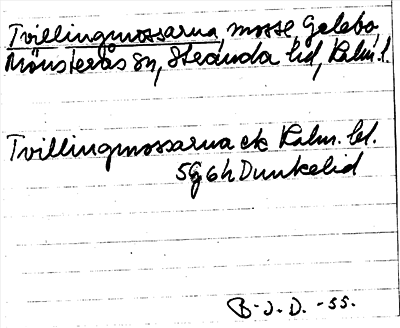 Tvillingmossarna, mosse, Gelebo,
Mönsterås sn, Stranda hd, Kalm. l.
Tvillingmossarna ek Kalm. bl.
5G6h Dunkelid
B-J.D. -55.